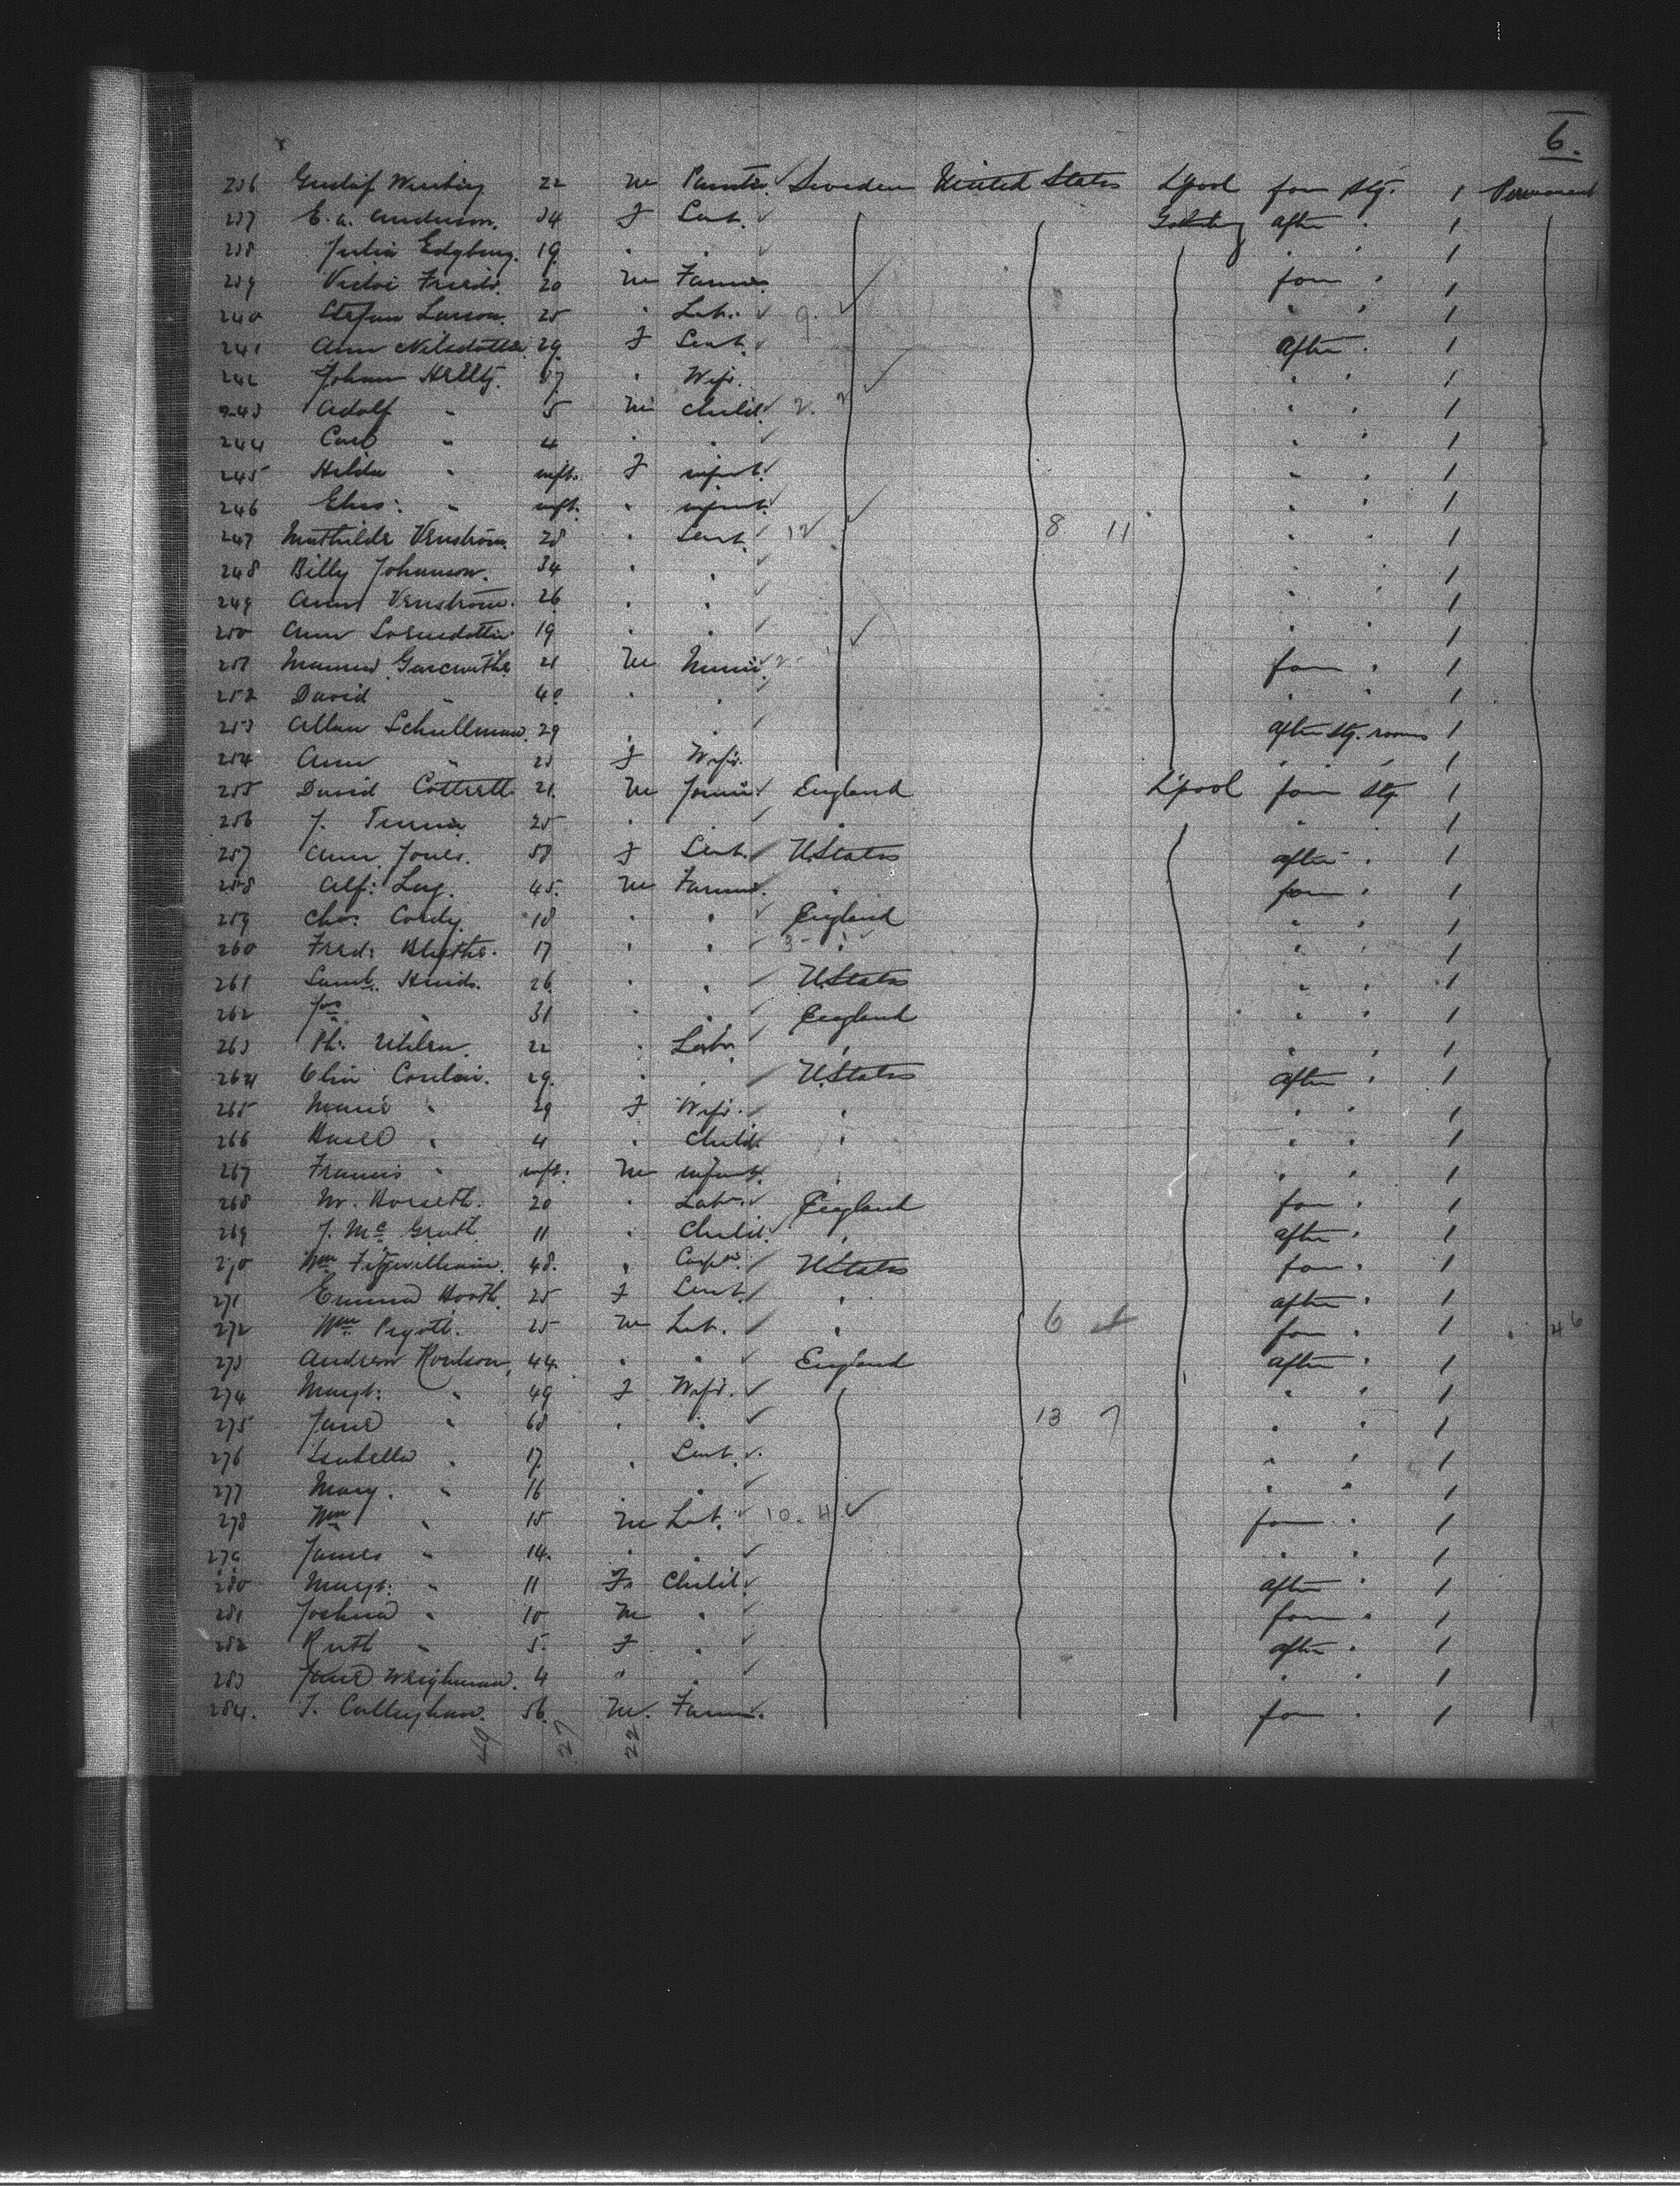 6.
236 Gustaf 22 m Sweden United States L'pool for Stg. 1 Permanent
237 E. A. Anderson. 34 f Servt. after " 1
238 Julia Edgberg. 19 " " " " 1
239 Victor 20 m Farmer for " 1
240 Stefan Larson. 25 " Labr. 9. " " 1
241 Ann Nilsdotter 29 f Servt. after " 1
242 Johan 37 " Wife. " " 1
243 Adolf " 5 m child. 2. 2 " " 1
244 Carl " 4 " " " " 1
245 Hilda " inft. f infant. " " 1
246 Elus: " inft. " infant. " " 1
247 Mathilde Venstrom 28 " Servt. 12 8 11 " " 1
248 Billy Johanson. 34 " " " " 1
249 Ann Venstrom. 26 " " " " 1
250 Ann 19 " " " " 1
251 21 m 2 for " 1
252 David " 40 " " " " 1
253 Allan Schullman. 29 " " after Stg. rooms 1
254 Ann " 23 f Wife. " " 1
255 David Cottrell 21. m England L'pool for Stg 1
256 J. 25 " " " " " 1
257 Ann Jones. 58 f Servt. U States after " 1
258 Alf: 45. m Farmer. " for " 1
259 Chas. Cordy. 18 " " England " " 1
260 Fred: Blythe. 17 " " 3 " " " 1
261 Saml. Hinds. 26 " " U States " " 1
262 Jas " 31 " " England " " 1
263 22 " Labr. " " " 1
264 29. " " U States after " 1
265 Marie " 29 f Wife. " " " 1
266 Hazel " 4 " child " " " 1
267 Francis " inft. m infant. " " " 1
268 20 " Labr. England for " 1
269 J. McGrath 11 " Child. " after " 1
270 Wm Fitzwilliam. 48. " Carpr. U States for " 1
271 Emma Booth. 25 f Servt. " after " 1
272 Wm Pygott. 25 m Lab. " 6 4 for " 1 46
273 Andrew Roulson, 44. " " England after " 1
274 Margt: " 49 f Wife. " " 1
275 Jane " 68 " " 13 7 " " 1
276 Isabella " 17 " Servt. " " 1
277 Mary. " 16 " " " " 1
278 Wm " 15 m Lab. 10. 4 for " 1
279 James " 14. " " " " 1
280 Margt: " 11 F. Child. after " 1
281 Joshua " 10 m " for " 1
282 Ruth " 5. f " after " 1
283 Jane Weighman. 4 " " " " 1
284. T. Callaghan. 56. M. Farmer. for " 1
49 27 22